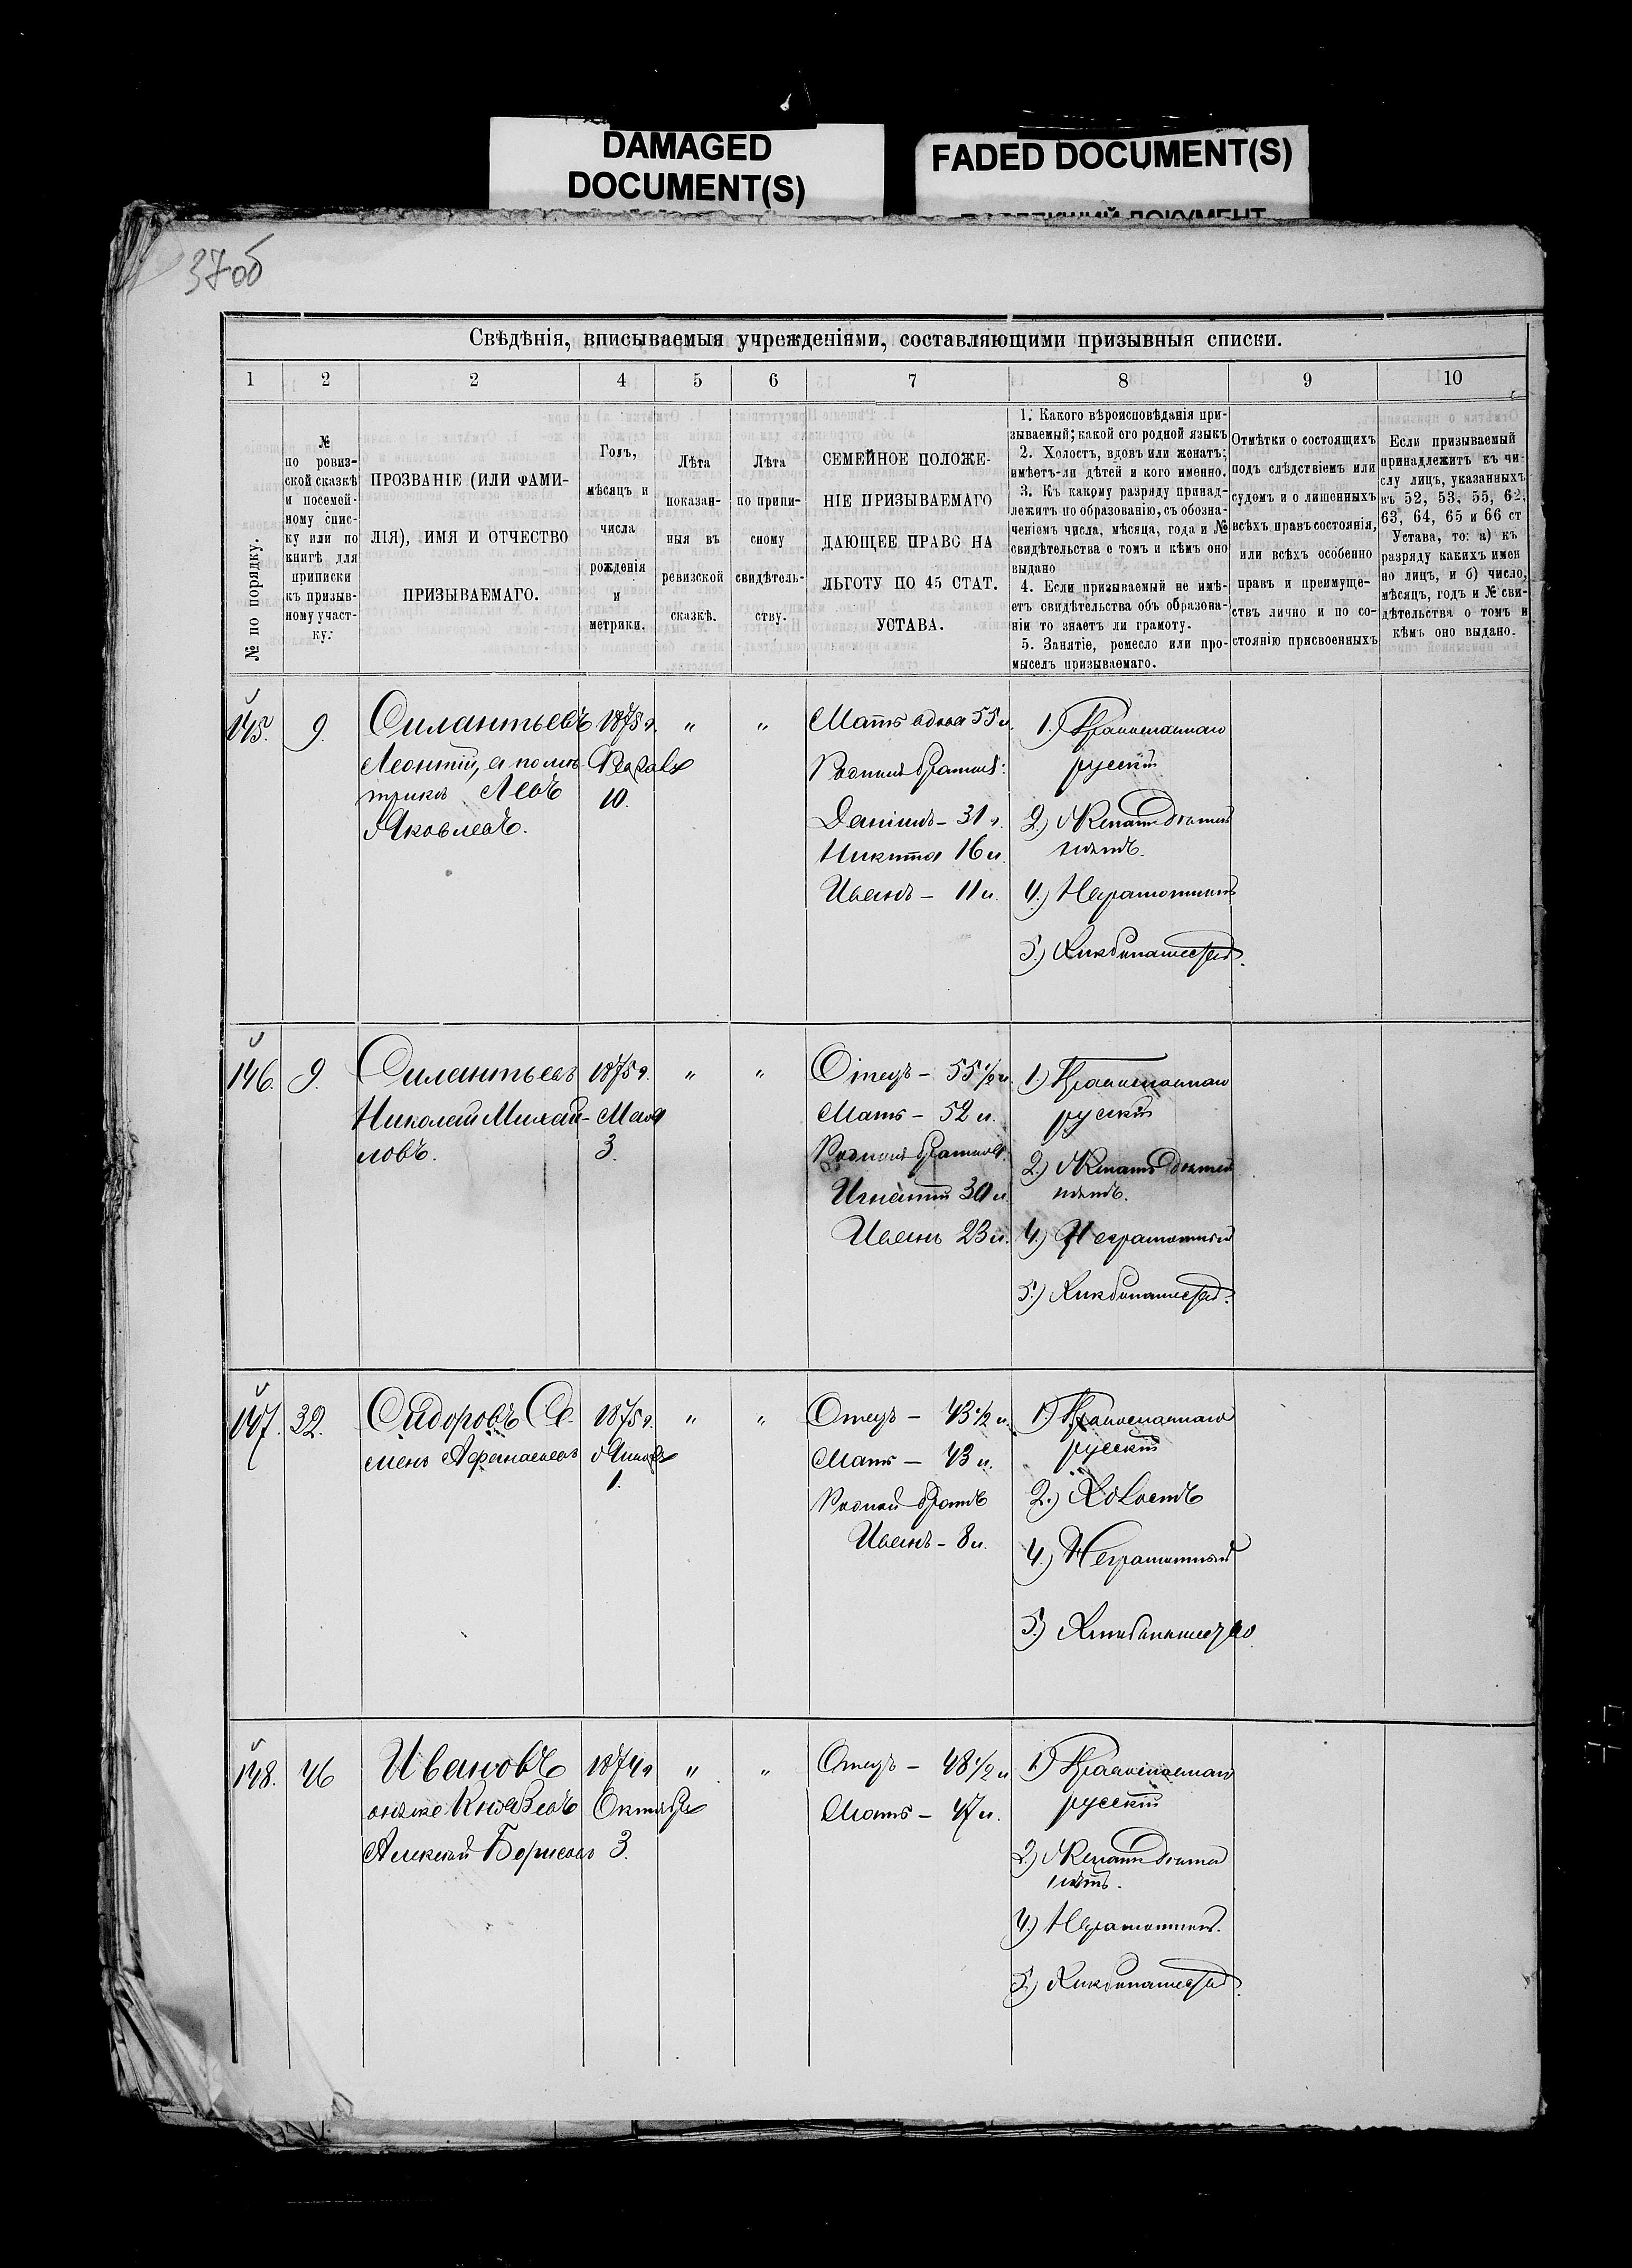 DAMAGED
DOCUMENT(S)
FADED DOCUMENT(S)
37об
Свѣдѣнія, вписываемыя учрежденіями, составляющими призывныя списки.
1 2 2 4 5 6 7 8 9 10
№ по порядку.
№
по ровиз-
ской сказкѣ
и посемей-
ному спис-
ку или по
книгѣ для
приписки
къ призыв-
ному участ-
ку.
ПРОЗВАНІЕ (ИЛИ ФАМИ-
ЛІЯ), ИМЯ И ОТЧЕСТВО
ПРИЗЫВАЕМАГО.
Годъ,
мѣсяцъ и
числа
рожденія
и
метрики.
Лѣта
показан-
ныя въ
ревизской
сказкѣ.
Лѣта
по припи-
сному
свидѣтель-
ству.
СЕМЕЙНОЕ ПОЛОЖЕ-
НІЕ ПРИЗЫВАЕМАГО
ДАЮЩЕЕ ПРАВО НА
ЛЬГОТУ ПО 45 СТАТ.
УСТАВА.
1. Какого вѣроисповѣданія при-
зываемый; какой его родной языкъ
2. Холостъ, вдовъ или женатъ;
имѣетъ-ли дѣтей и кого именно.
3. Къ какому разряду принад-
лежитъ по образованію, съ обозна-
ченіемъ числа, мѣсяца, года и №
свидѣтельства о томъ и кѣмъ оно
выдано
4. Если призываемый не имѣ-
етъ свидѣтельства объ образова-
ніи то знаетъ ли грамоту.
5. Занятіе, ремесло или про-
мыселъ призываемаго.
Отмѣтки о состоящихъ
подъ слѣдствіемъ или
судомъ и о лишенныхъ
всѣхъ правъ состоянія,
или всѣхъ особенно
правъ и преимуще-
ствъ лично и по со-
стоянію присвоенныхъ
Если призываемый
принадлежитъ къ чи-
слу лицъ, указанныхъ
въ 52, 53, 55, 62,
63, 64, 65 и 66 ст
Устава, то: а) къ
разряду какихъ имен
но лицъ, и б) число,
мѣсяцъ, годъ и № сви-
дѣтельства о томъ и
кѣмъ оно выдано.
145.
9.
Силантьевъ
Леонтій, а по ме-
трикѣ Левъ
Яковлевъ.
1875 г.
Февраля
10.
„
„
Мать вдова 55 л.
Родные братья:
Данило – 31 г.
Никита 16 л.
Иванъ – 11 л.
1.) Православнаго
русскій
2.) Женатъ дѣтей
нѣтъ.
4.) Неграмотный
5.) Хлѣбопашество.
146.
9.
Силантьевъ
Николай Михай-
ловъ.
1875 г.
Мая
3.
„
„
Отецъ – 55 1/2 л.
Мать – 52 л.
Родные братья:
Игнатій 30 л.
Иванъ 23 л.
1.) Православнаго
русскій
2.) Женатъ дѣтей
нѣтъ.
4.) Неграмотный
5.) Хлѣбопашество.
147.
32.
Сидоровъ Се-
менъ Афанасьевъ
1875 г.
1.
„
„
Отецъ – 43 1/2 л.
Мать – 43 л.
Родной братъ
Иванъ – 8 л.
1.) Православнаго
русскій
2.) Холостъ
4.) Неграмотный
5.) Хлѣбопашество
148.
46
Ивановъ
онъ же Князевъ
Алексѣй Борисовъ
1874 г
Октября
3.
„
„
Отецъ – 48 1/2 л
Мать – 47 л.
1.) Православнаго
русскій
2.) Женатъ дѣтей
нѣтъ.
4.) Неграмотный.
5.) Хлѣбопашество.